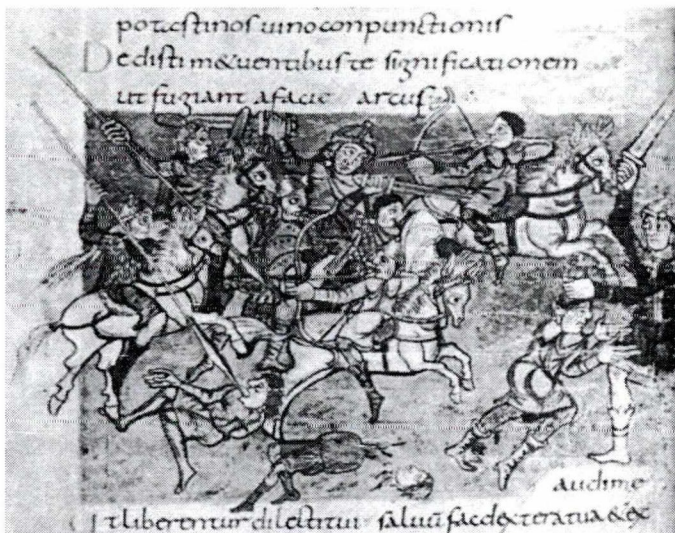 potasti nos uino conpunctionis
Dedisti m&uentibus te significationem
ut fugiant afacie arcus
audi me
Ut liberentur dilecti tui saluu fac dextera tua & ex